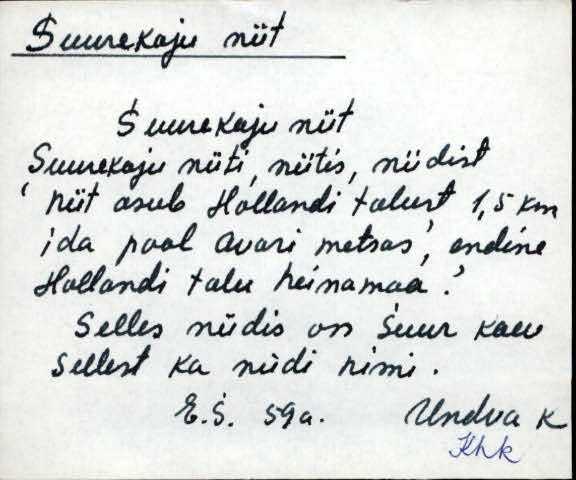 Suurekaju niit
Suurekaju niit
Suurekaju niiti, niitis, niidist
'niit asub Hollandi talust 1,5 km
ida pool avari metsas', endine
Hollandi talu heinamaa.'
Selles niidis on suur kaev
sellest ka niidi nimi.
E.S. 59a. Undva K
Khk